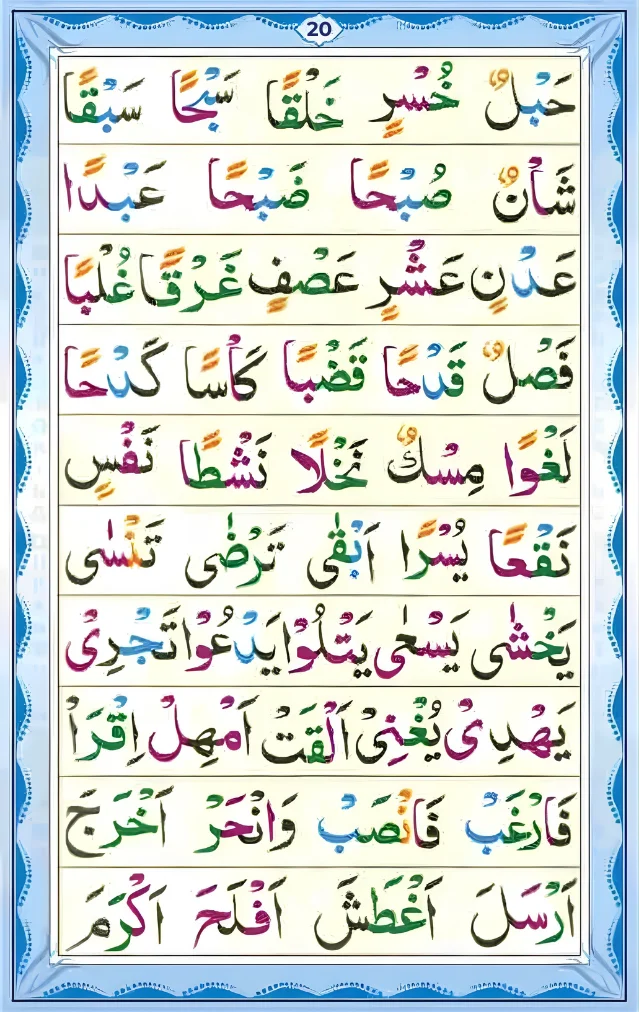 20
حَبْلٌ خُسْرٍ خَلْقًا سَبْحًا سَبْقًا
شَأْنٌ صُبْحًا ضَبْحًا عَبْدًا
عَدْنٍ عَشْرٍ عَصْفٍ غَرْقًا غُلْبًا
فَصْلٌ قَدْحًا قَضْبًا كَأْسًا كَدْحًا
لَغْوًا مِسْكٌ نَخْلًا نَشْطًا نَفْسٍ
نَقْعًا يُسْرًا اَبْقٰى تَرْضٰى تَنْسٰى
يَخْشٰى يَسْعٰى يَتْلُوْا يَدْعُوْا تَجْرِىْ
يَهْدِىْ يُغْنِىْ اَلْقَتْ اَمْهِلْ اِقْرَاْ
فَارْغَبْ فَانْصَبْ وَانْحَرْ اَخْرَجَ
اَرْسَلَ اَغْطَشَ اَفْلَحَ اَكْرَمَ